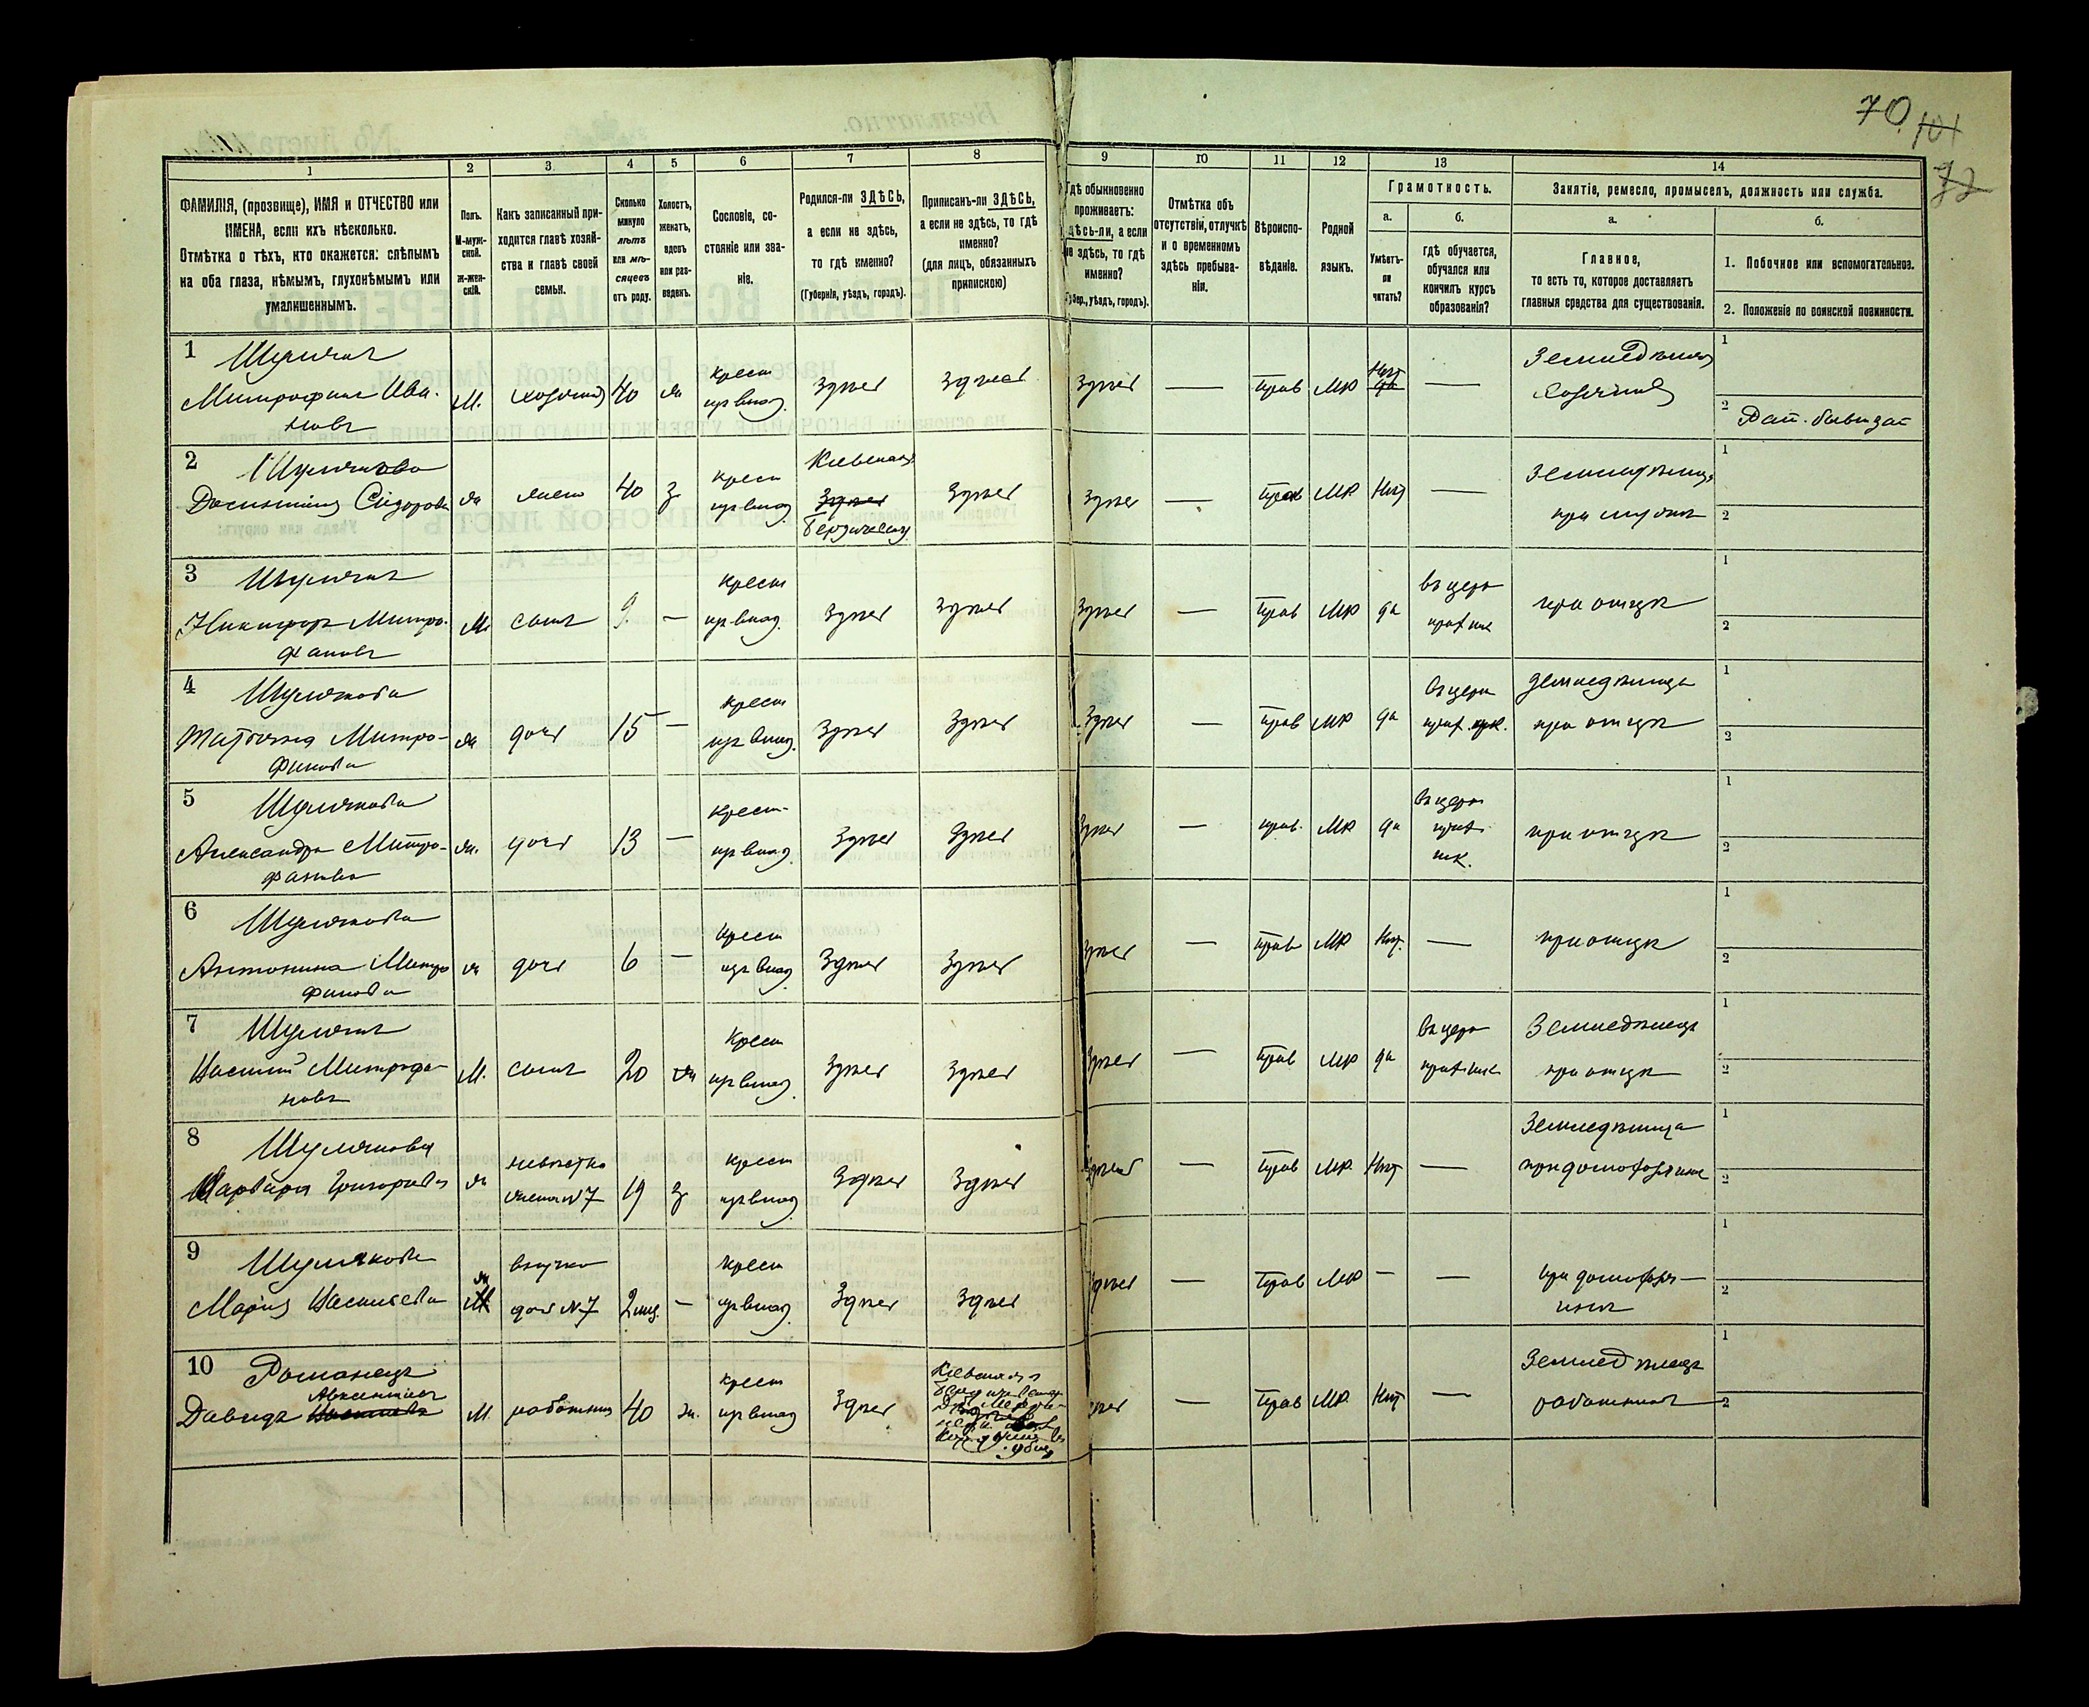 70
101
72
1
2
3
4
5
6
7
8
9
10
11
12
13
14
ФАМИЛІЯ, (прозвище), ИМЯ и ОТЧЕСТВО или
ИМЕНА, если ихъ нѣсколько.
Отмѣтка о тѣхъ, кто окажется: слѣпымъ
на оба глаза, нѣмымъ, глухонѣмымъ или
умалишеннымъ.
Полъ.
М-муж-
ской.
ж-жен-
скій.
Какъ записанный при-
ходится главѣ хозяй-
ства и главѣ своей
семьи.
Сколько
минуло
лѣтъ
или мѣ-
сяцевъ
отъ роду.
Холостъ,
женатъ,
вдовъ
или раз-
веденъ.
Сословіе, со-
стояніе или зва-
ніе.
Родился-ли ЗДѢСЬ,
а если не здѣсь,
то гдѣ именно?
(Губернія, уѣздъ, городъ).
Приписанъ-ли ЗДѢСЬ,
а если не здѣсь, то гдѣ
именно?
(для лицъ, обязанныхъ
припискою)
Гдѣ обыкновенно
проживаетъ:
здѣсь-ли, а если
не здѣсь, то гдѣ
именно?
(Губер., уѣздъ, городъ).
Отмѣтка объ
отсутствіи, отлучкѣ
и о временномъ
здѣсь пребыва-
ніи.
Вѣроиспо-
вѣданіе.
Родной
языкъ.
Грамотность.
а.
Умѣетъ-
ли
читать?
б.
гдѣ обучается,
обучался или
кончилъ курсъ
образованія?
Занятіе, ремесло, промыселъ, должность или служба.
а.
Главное,
то есть то, которое доставляетъ
главныя средства для существованія.
б.
1. Побочное или вспомогательное.
2. Положеніе по воинской повинности.
1 Шулякъ
Митрофанъ Ива-
новъ
М. хозяинъ 40 ж
крест
из влад.
здѣсь здѣсь здѣсь — прав МР
Нѣт
да
—
Земледѣлецъ
Хозяинъ
1
2
2 Шулякова
Сидорова
ж жена 40 з
крест
из влад.
Кіевская
здѣсь
Бердичевск
здѣсь здѣсь — прав МР Нѣт —
Земледѣлица
при мужѣ
1
2
3 Шулякъ
Никифоръ Митро-
фановъ
М сынъ 9 —
крест
из влад.
здѣсь здѣсь здѣсь — прав МР да
въ церк
прих шк
при отцѣ
1
2
4 Шулякова
Татьяна Митро-
фанова
ж дочь 15 —
крест
из влад.
здѣсь здѣсь здѣсь — прав МР да
въ церк
прих. шк.
Земледѣлица
при отцѣ
1
2
5 Шулякова
Александра Митро-
фанова
ж. дочь 13 —
крест
из влад.
здѣсь здѣсь здѣсь — прав. МР да
въ церк
прих
шк.
при отцѣ
1
2
6 Шулякова
Антонина Митро
фанова
ж дочь 6 —
крест
из влад.
здѣсь здѣсь здѣсь — прав МР Нѣт. —
при отцѣ
1
2
7 Шулякъ
Василий Митрофа-
новъ
М. сынъ 20 ж
крест
из влад.
здѣсь здѣсь здѣсь — прав МР да
въ церк
прих шк
Земледѣлецъ
при отцѣ
1
2
8 Шулякова
Варвара Григорьева
ж
невѣстка
жена N7
19 з
крест
из влад.
здѣсь здѣсь здѣсь — прав МР. Нѣт —
Земледѣлица
при домохозяинѣ
1
2
9 Шулякова
Марія Васильева
ж
внучка
дочь N7
2 мѣс. —
крест
из влад.
здѣсь здѣсь здѣсь — прав МР — —
при домохозя-
инѣ
1
2
10 Романецъ
Авксентіевъ
Давидъ Васильевъ
М. работник 40 ж.
крест
из влад
здѣсь
Кіевская г
здѣсь — прав МР. Нѣт —
Земледѣлецъ
работникъ
1
2